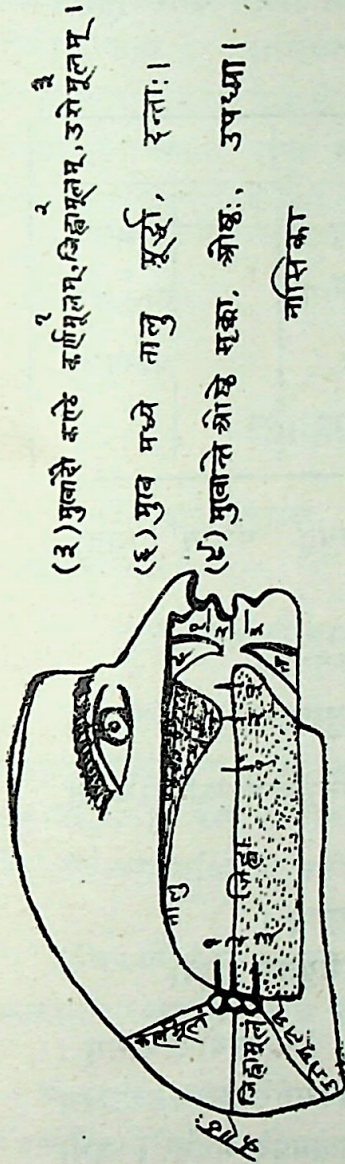 १ २ ३
(३) मुखादौ काण्ठे कर्णमूलम्, जिह्वामूलम्, उरोमूलम् ।
(६) मुख मध्ये तालु मूर्द्धा, दन्ताः।
(९) मुखान्ते ओष्ठे सृक्का, ओष्ठः, उपध्मा।
नासिका
तालु
१ २ ३
जिह्वा
१ २ ३
१ २ ३
कर्णमूलं
जिह्वामूलं
उरोमूलम्
कण्ठः